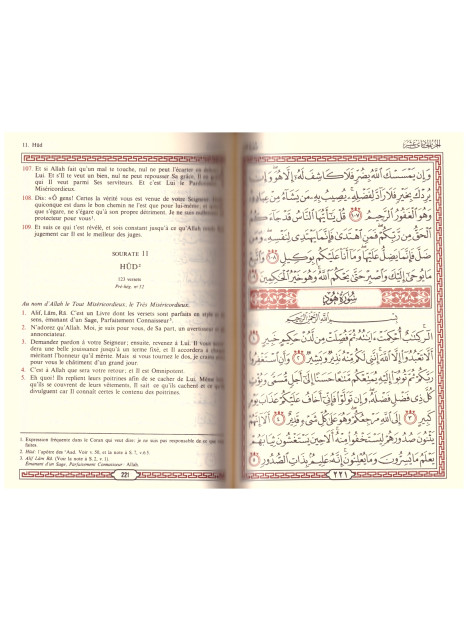 11. Hūd
107. Et si Allah fait qu'un mal te touche, nul ne peut l'écarter en
Lui. Et s'Il te veut un bien, nul ne peut repousser Sa grâce. Il en
qui Il veut parmi Ses serviteurs. Et c'est Lui le Pardonneur,
Miséricordieux.
108. Dis: «Ô gens! Certes la vérité vous est venue de votre Seigneur.
quiconque est dans le bon chemin ne l'est que pour lui-même, et
que s'égare, ne s'égare qu'à son propre détriment. Je ne suis
protecteur pour vous¹.
109. Et suis ce qui t'est révélé, et sois constant jusqu'à ce qu'Allah
jugement car Il est le meilleur des juges.
SOURATE 11
HŪD²
123 versets
Pré-hég. n° 52
Au nom d'Allah le Tout Miséricordieux, le Très Miséricordieux.
1. Alif, Lām, Rā. C'est un Livre dont les versets sont parfaits en style et
sens, émanant d'un Sage, Parfaitement Connaisseur³.
2. N'adorez qu'Allah. Moi, je suis pour vous, de Sa part, un avertisseur et
annonciateur.
3. Demandez pardon à votre Seigneur; ensuite, revenez à Lui. Il vous
dera une belle jouissance jusqu'à un terme fixé, et Il accordera à chaque
méritant l'honneur qu'il mérite. Mais si vous tournez le dos, je crains
vous le châtiment d'un grand jour.
4. C'est à Allah que sera votre retour; et Il est Omnipotent.
5. Eh quoi! Ils replient leurs poitrines afin de se cacher de Lui. Même
qu'ils se couvrent de leurs vêtements, Il sait ce qu'ils cachent et ce qu'ils
divulguent car Il connaît certes le contenu des poitrines.
1. Expression fréquente dans le Coran qui veut dire: je ne suis pas responsable de ce que
faites.
2. Hūd: l'apôtre des 'Aad. Voir v.50, et la note à S. 7, v.65.
3. Alif Lām Rā. (Voir la note à S.2, v. 1).
Émanant d'un Sage, Parfaitement Connaisseur: Allah.
221
وَإِن يَمْسَسْكَ ٱللَّهُ بِضُرٍّ فَلَا كَاشِفَ لَهُۥٓ إِلَّا هُوَ ۖ وَإِن
يُرِدْكَ بِخَيْرٍ فَلَا رَآدَّ لِفَضْلِهِۦ ۚ يُصِيبُ بِهِۦ مَن يَشَآءُ مِنْ عِبَادِهِۦ ۚ
وَهُوَ ٱلْغَفُورُ ٱلرَّحِيمُ ١٠٧ قُلْ يَٰٓأَيُّهَا ٱلنَّاسُ قَدْ جَآءَكُمُ
ٱلْحَقُّ مِن رَّبِّكُمْ ۖ فَمَنِ ٱهْتَدَىٰ فَإِنَّمَا يَهْتَدِى لِنَفْسِهِۦ ۖ وَمَن
ضَلَّ فَإِنَّمَا يَضِلُّ عَلَيْهَا ۖ وَمَآ أَنَا۠ عَلَيْكُم بِوَكِيلٍ ١٠٨ وَٱتَّبِعْ
مَا يُوحَىٰٓ إِلَيْكَ وَٱصْبِرْ حَتَّىٰ يَحْكُمَ ٱللَّهُ ۚ وَهُوَ خَيْرُ ٱلْحَٰكِمِينَ ١٠٩
سُورَةُ هُودٍ
بِسْمِ ٱللَّهِ ٱلرَّحْمَٰنِ ٱلرَّحِيمِ
الٓر ۚ كِتَٰبٌ أُحْكِمَتْ ءَايَٰتُهُۥ ثُمَّ فُصِّلَتْ مِن لَّدُنْ حَكِيمٍ خَبِيرٍ ١
أَلَّا تَعْبُدُوٓا۟ إِلَّا ٱللَّهَ ۚ إِنَّنِى لَكُم مِّنْهُ نَذِيرٌ وَبَشِيرٌ ٢ وَأَنِ ٱسْتَغْفِرُوا۟
رَبَّكُمْ ثُمَّ تُوبُوٓا۟ إِلَيْهِ يُمَتِّعْكُم مَّتَٰعًا حَسَنًا إِلَىٰٓ أَجَلٍ مُّسَمًّى وَيُؤْتِ
كُلَّ ذِى فَضْلٍ فَضْلَهُۥ ۖ وَإِن تَوَلَّوْا۟ فَإِنِّىٓ أَخَافُ عَلَيْكُمْ عَذَابَ يَوْمٍ
كَبِيرٍ ٣ إِلَى ٱللَّهِ مَرْجِعُكُمْ ۖ وَهُوَ عَلَىٰ كُلِّ شَىْءٍ قَدِيرٌ ٤ أَلَآ إِنَّهُمْ
يَثْنُونَ صُدُورَهُمْ لِيَسْتَخْفُوا۟ مِنْهُ ۚ أَلَا حِينَ يَسْتَغْشُونَ ثِيَابَهُمْ
يَعْلَمُ مَا يُسِرُّونَ وَمَا يُعْلِنُونَ ۚ إِنَّهُۥ عَلِيمٌۢ بِذَاتِ ٱلصُّدُورِ ٥
٢٢١